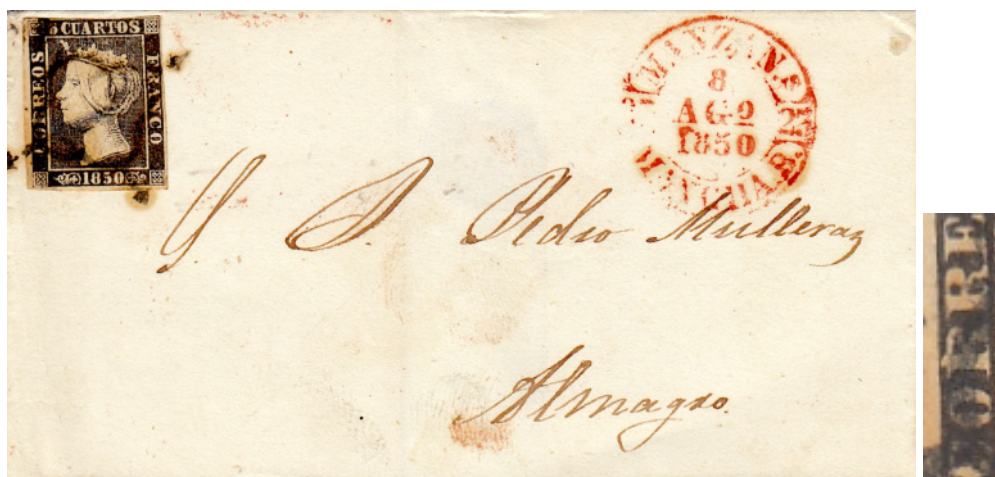 6 CUARTOS
CORREOS
FRANCO
1850
MANZANS
8
AGO
1850
MANCHA
S. D. Pedro Mulleras
Almagro.